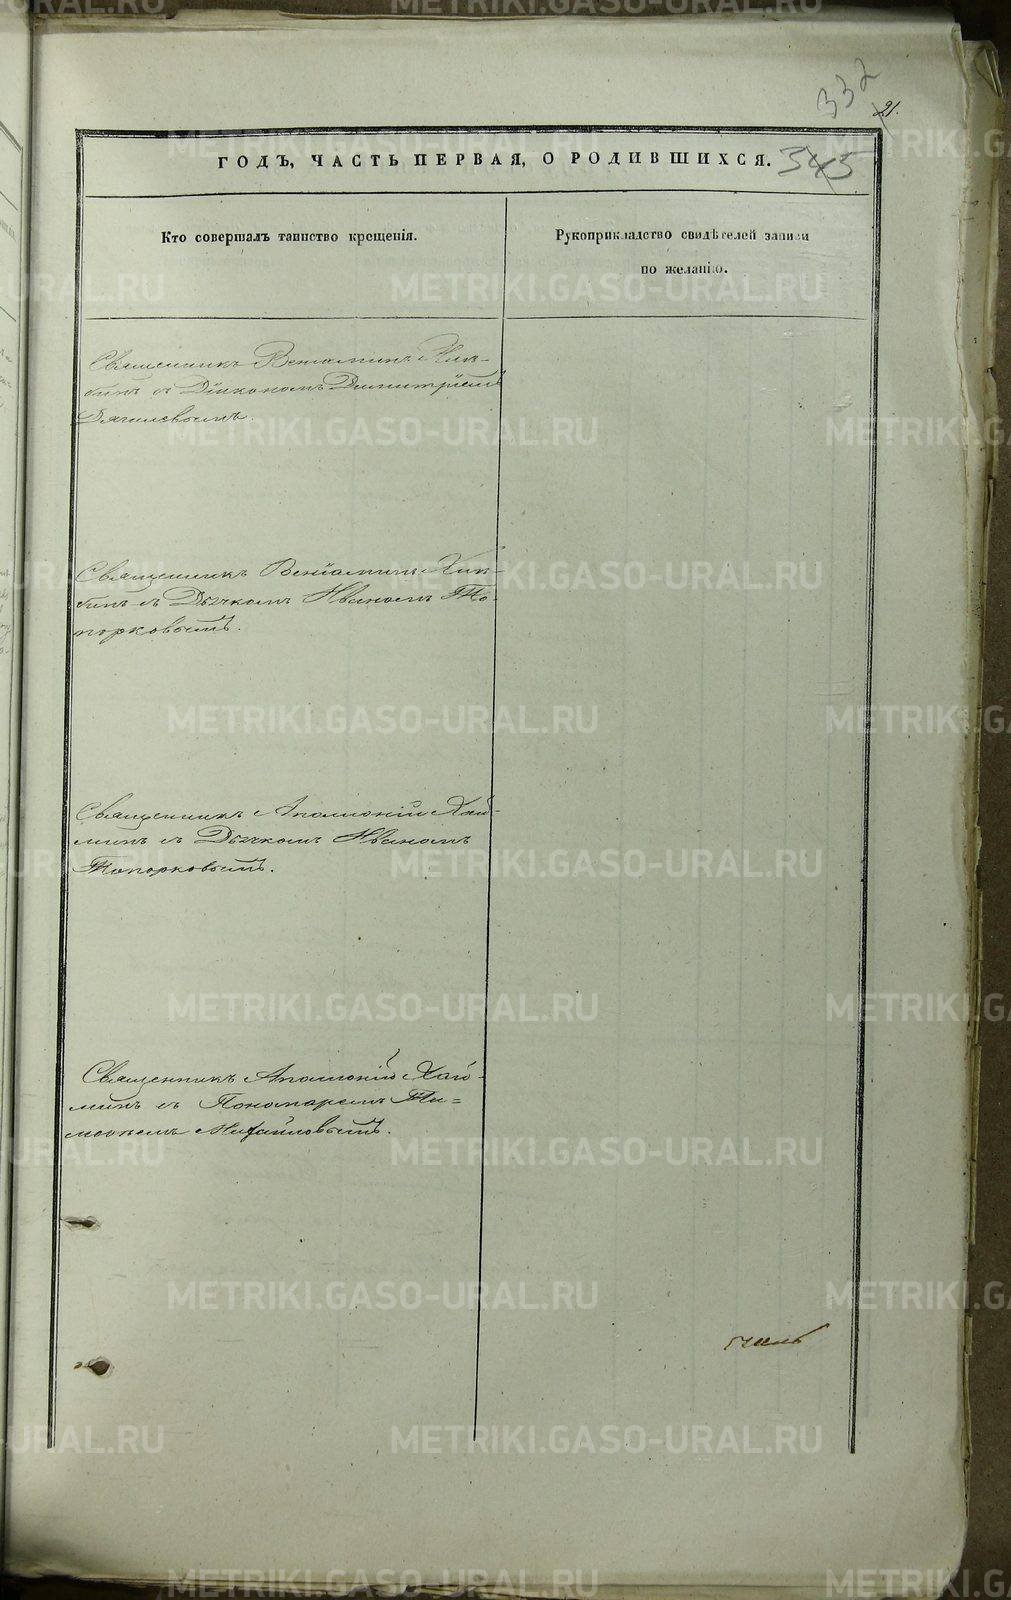 332
21.
ГОДЪ, ЧАСТЬ ПЕРВАЯ, О РОДИВШИХСЯ.
345
Кто совершалъ таинство крещенія.
Рукоприкладство свидѣтелей записи
по желанію.
Священникъ Веніаминъ
съ Діакономъ Димитріемъ
Дягилевымъ.
Священникъ Веніаминъ
съ Дьячкомъ Иваномъ То-
порковымъ.
Священникъ Аполлоній Хай-
минъ съ Дьячкомъ Иваномъ
Топорковымъ.
Священникъ Аполлоній Хай-
минъ съ Пономаремъ Ти-
моѳеемъ Михайловымъ.
METRIKI.GASO-URAL.RU